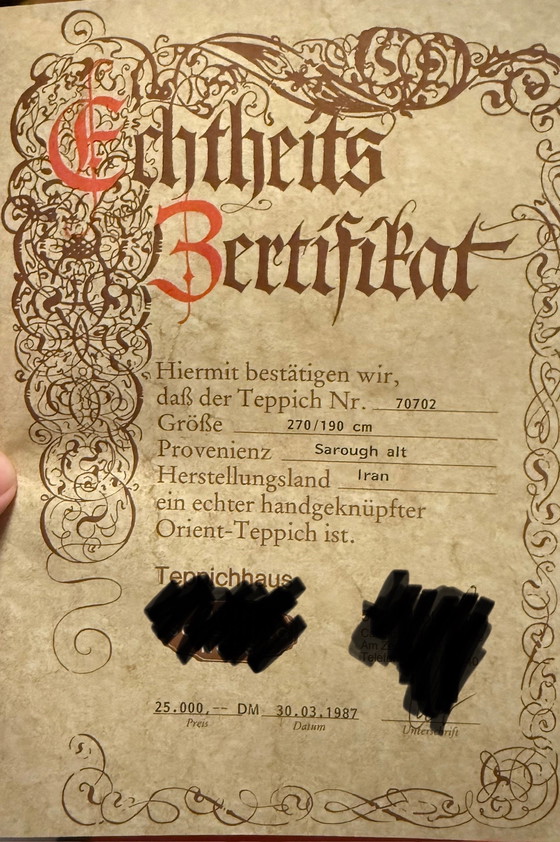 Echtheits
Zertifikat
Hiermit bestätigen wir,
daß der Teppich Nr. 70702
Größe 270/190 cm
Provenienz Sarough alt
Herstellungsland Iran
ein echter handgeknüpfter
Orient-Teppich ist.
Teppichhaus
25.000,-- DM 30.03.1987
Preis Datum Unterschrift